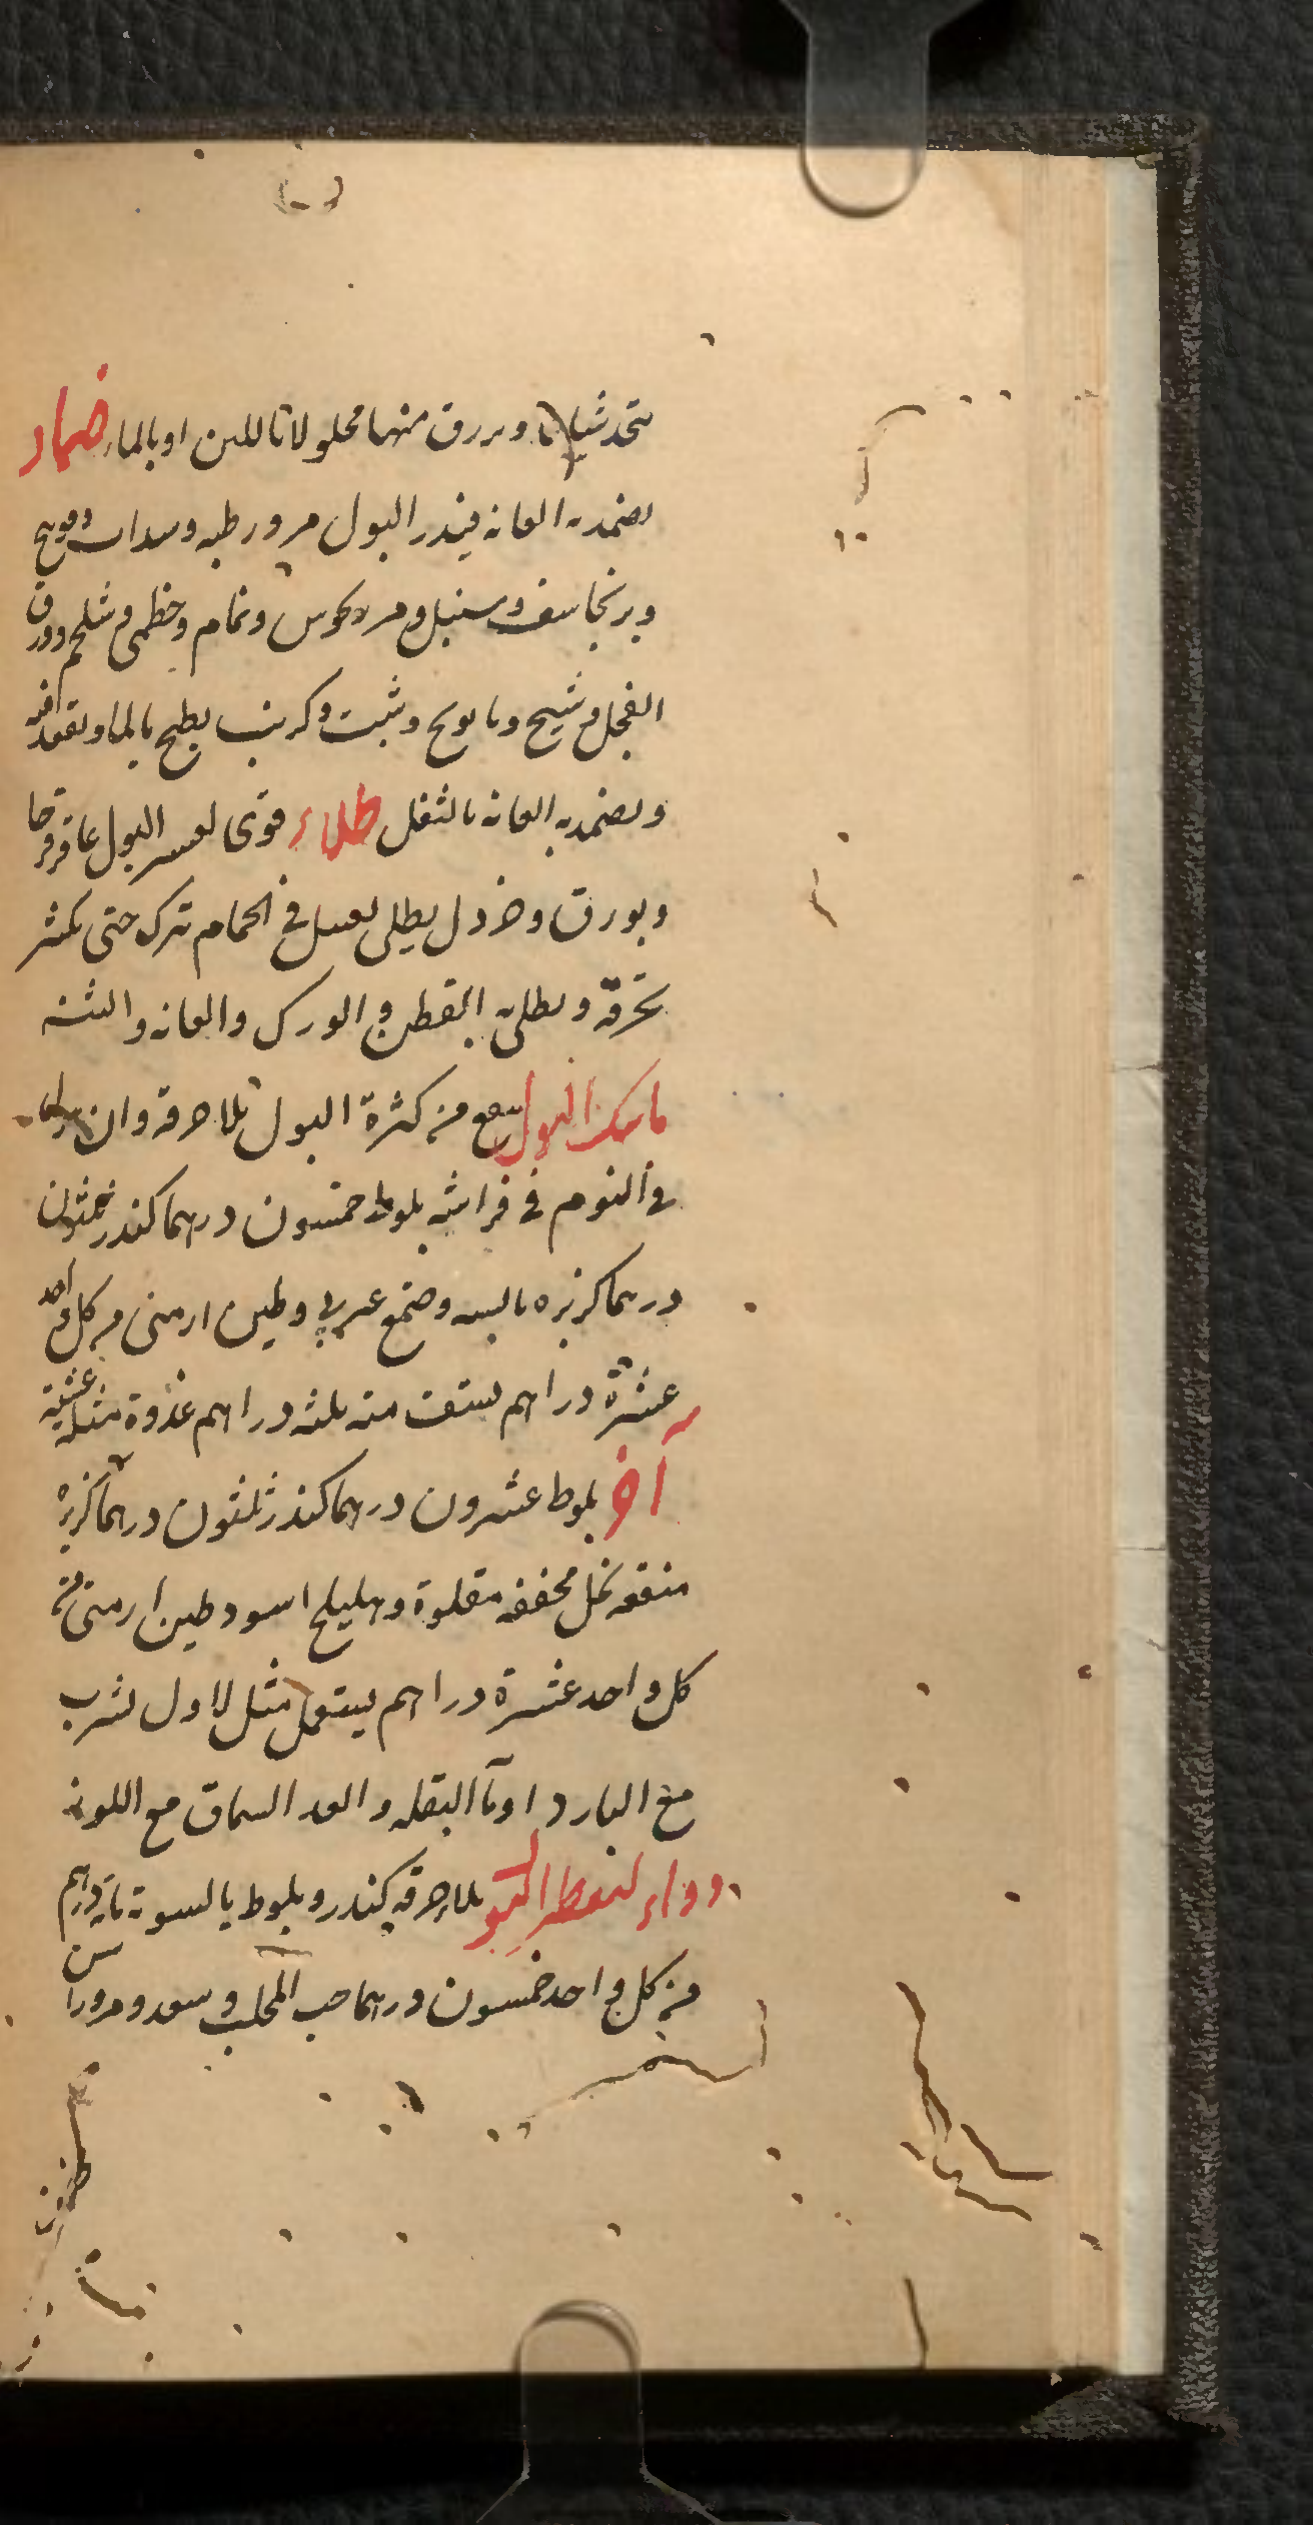 يتخذ شيافا ويزرق منها محلولا باللبن او بالماء ضماد
يضمد به العانه فيدر البول مر ورطبه وسداب وفوتنج
وبرنجاسف وسنبل ومردكوس ونمام وخطمى وشلجم وورق
الفجل وشيح وبابونج وشبت وكرنب يطبخ بالما ويقعد فيه
ويضمد به العانه بالثفل طلاء قوى لعسر البول عاقرقرحا
وبورق وخردل يطلى بعسل فى الحمام تترك حتى
بحرقة ويطلى به القطن والورك والعانه
ماسك البول ينفع من كثرة البول بلا حرقة وان
فى النوم فى فراشه بلوط خمسون درهما كندر ثلثون
درهما كزبره يابسه وصمغ عربى وطين ارمنى من كل واحد
عشرة دراهم يستف منه ثلثه دراهم غدوة ومثله عشية
آخر بلوط عشرون درهما كندر ثلثون درهما كزبرة
منقعه بخل مجففه مقلوة وهليلج اسود طين ارمنى من
كل واحد عشرة دراهم يستعمل مثل الاول بشرب
مع البارد او ماء البقله والعد السماق مع
دواء لتقطير البول بلا حرقه كندر وبلوط بالسوية
من كل واحد خمسون درهما حب المحلب وسعد ومر وراسن